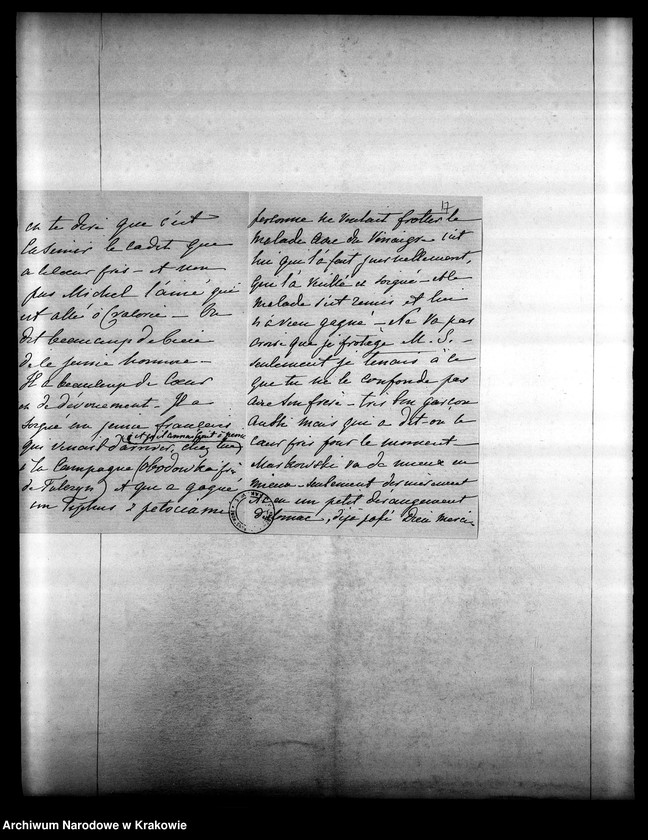 en te disant que c'est
Casimir le cadet que
a le cœur pris - et non
pas Michel l'ainé qui
est allé à - On
dit beaucoup de bien
de le jeune homme -
Il a beaucoup de cœur
et de dévouement. Il a
soigné un jeune français
qui venait d'arriver, chez eux
à la Campagne (
de ) et que a gagné
un Typhus à petociame
17
personne ne voulait frotter le
malade avec du Vinaigre c'est
lui que l'a fait journellement,
que l'a veillé et soigné - et le
malade s'est remis et lui
n'a rien gagné - Ne va pas
croire que je protège M. S. -
seulement je tenais à ce
que tu ne le confonde pas
avec son frère - très bon garçon
aussi mais qui a dit-on le
cœur pris pour le moment
Markowski va de mieux en
mieux - seulement dernièrement
il a eu un petit dérangement
d'estomac, déjà passé Dieu merci -
Archiwum Narodowe w Krakowie